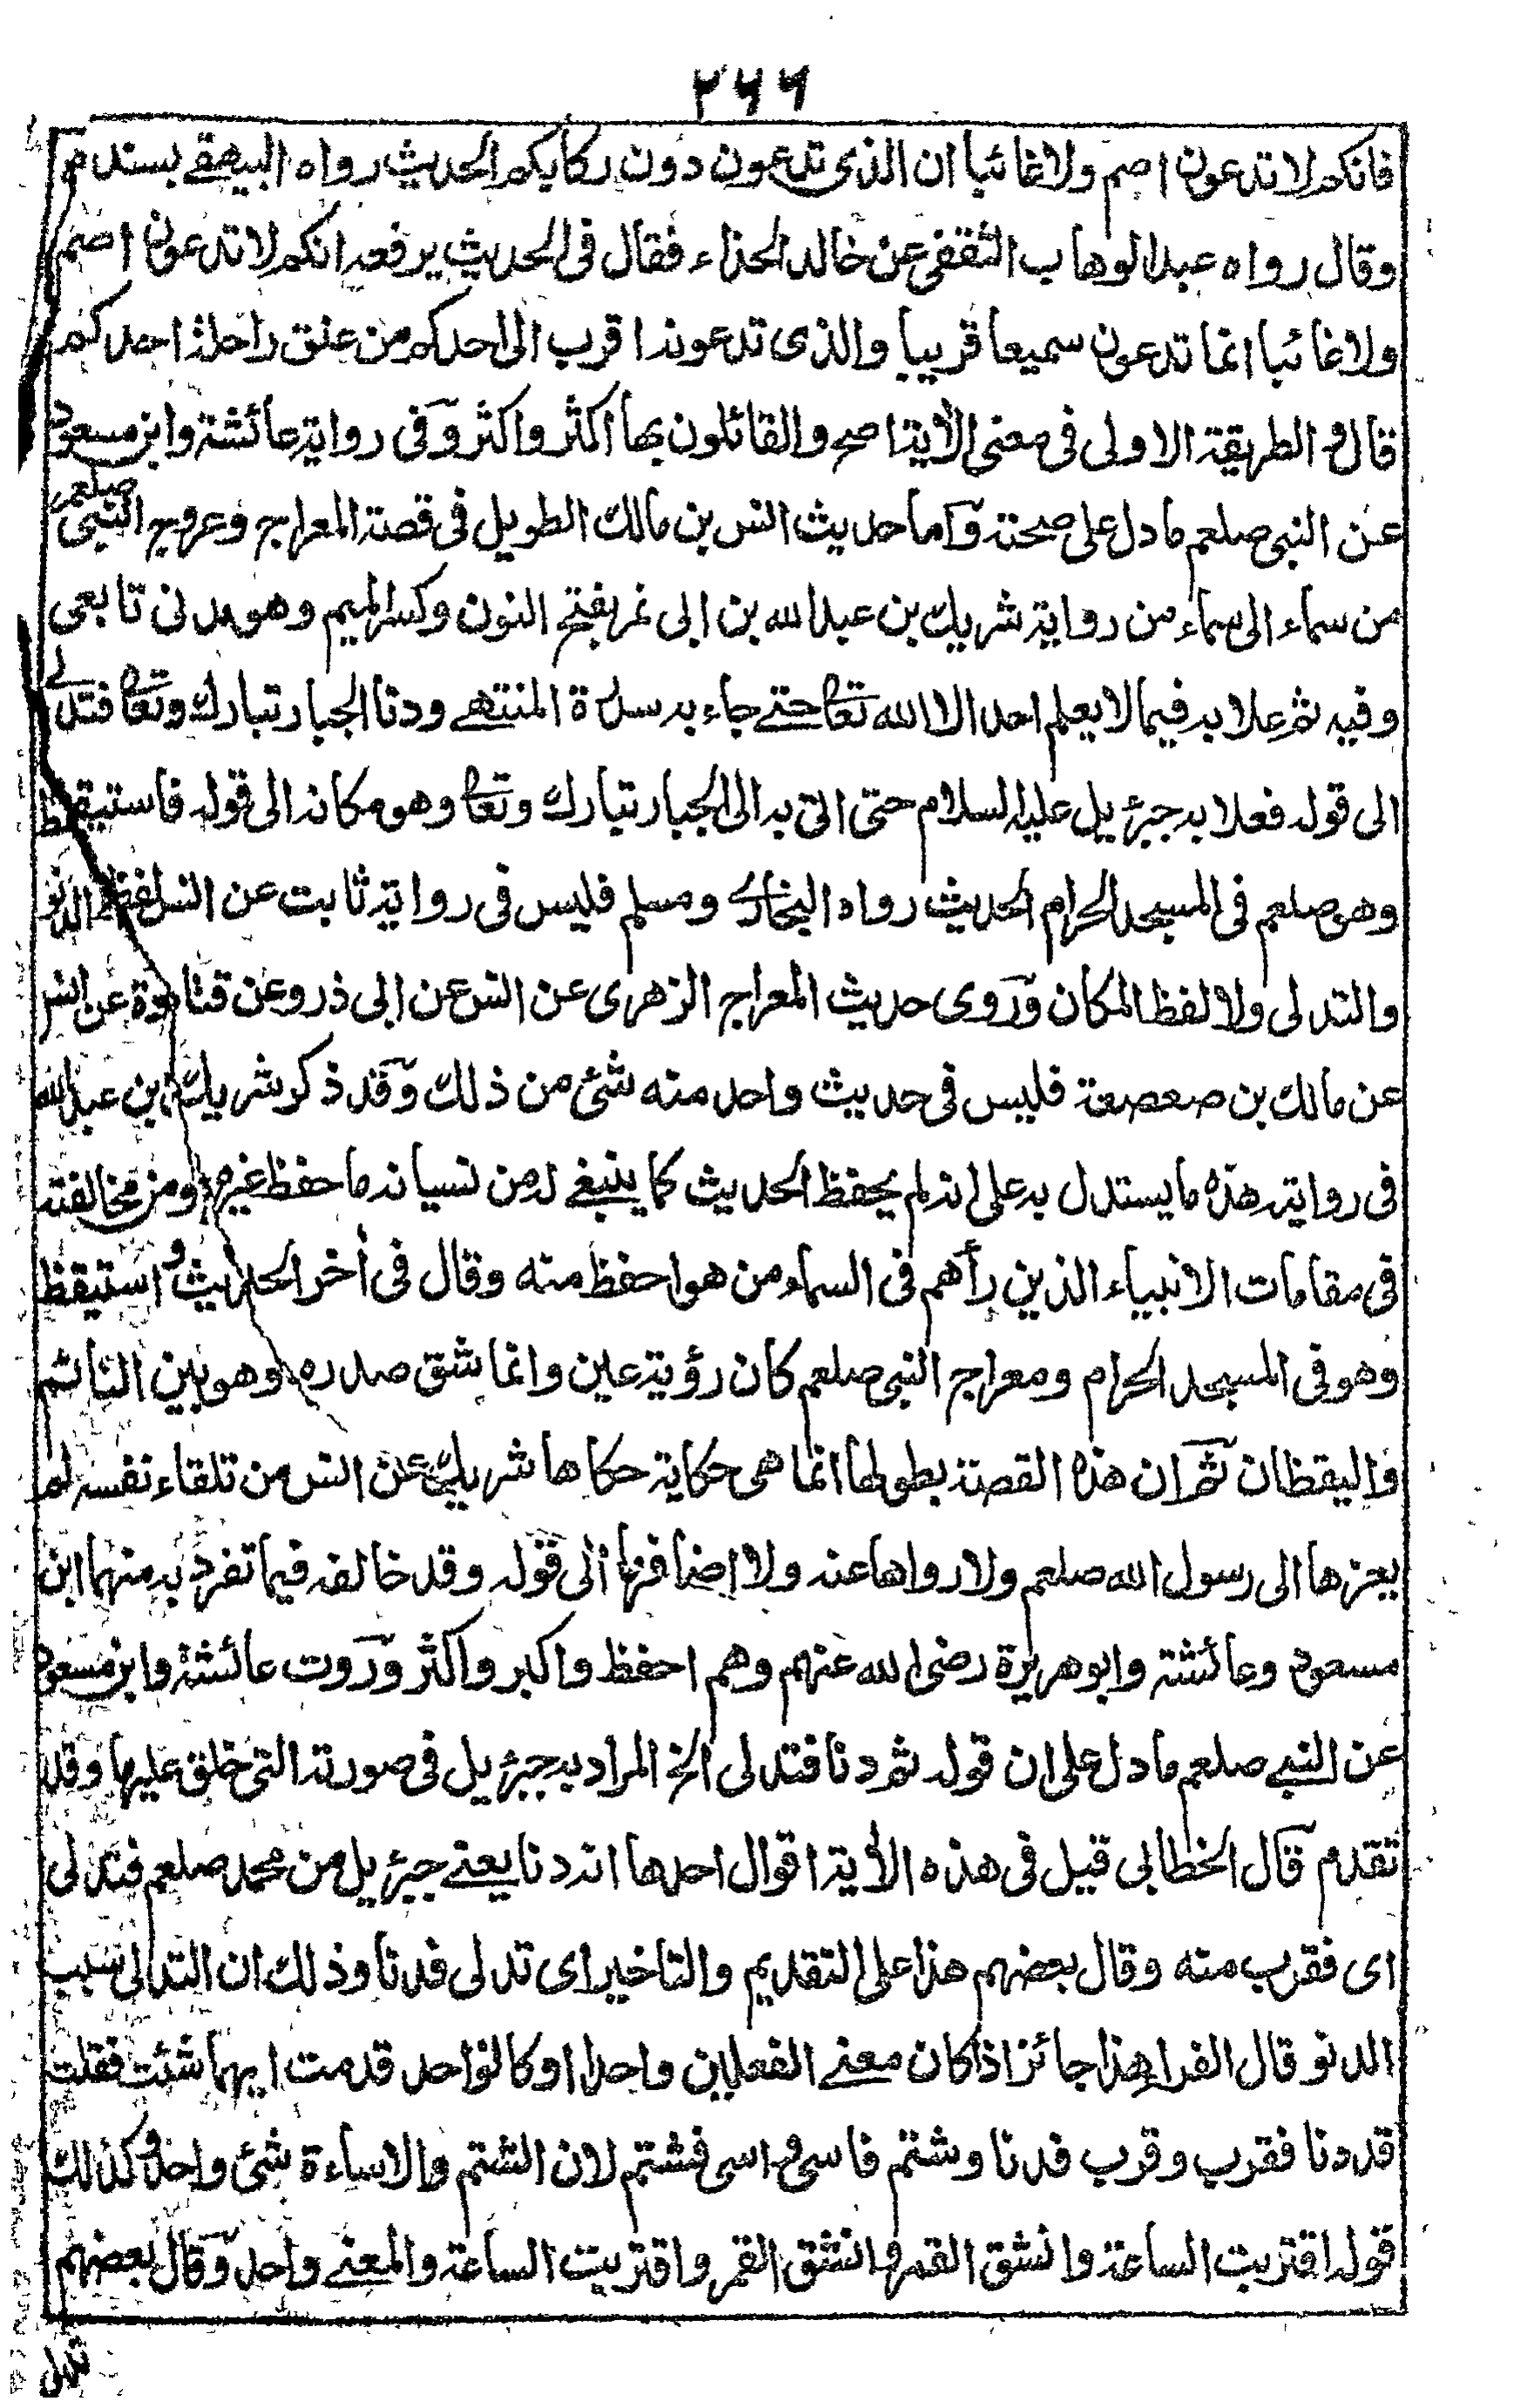 ٢٦٦
فانكم لا تدعون اصم ولا غائبا ان الذى تدعون دون ركابكم الحديث رواه البيهقے بسنده
وقال رواه عبد الوهاب الثقفى عن خالد الحذاء فقال فى الحديث يرفعه انكم لا تدعون اصم
ولا غائبا انما تدعون سميعا قريبا والذى تدعونه اقرب الى احدكم من عنق راحلة احدكم
قال و الطريقة الاولى فى معنى الأية اصح والقائلون بها اكثر واكثر وفى رواية عائشة وابن مسعود
عن النبى صلعم ما دل على صحته واما حديث انس بن مالك الطويل فى قصة المعراج وعروج النبى صلعم
من سماء الى سماء من رواية شريك بن عبد الله بن ابى نمر بفتح النون وكسر الميم وهو مدنى تابعى
وفيه ثم علا به فيما لا يعلم احد الا الله تعالى حتے جاء به سدرة المنتهے ودنا الجبار تبارك وتعالى فتدلے
الى قوله فعلا به جبرئيل عليه السلام حتى اتى به الى الجبار تبارك وتعالى وهو مكانه الى قوله فاستيقظ
وهو صلعم فى المسجد الحرام الحديث رواه البخارے ومسلم فليس فى رواية ثابت عن انس لفظ الدنو
والتدلى ولا لفظ المكان وروى حديث المعراج الزهرى عن انس عن ابى ذر وعن قتادة عن انس
عن مالك بن صعصعة فليس فى حديث واحد منه شئ من ذلك وقد ذكر شريك بن عبد الله
فى روايته هذه ما يستدل به على انه لم يحفظ الحديث كما ينبغے له من نسيانه ما حفظ غيره ومن مخالفته
فى مقامات الانبياء الذين رأهم فى السماء من هو احفظ منه وقال فى أخر الحديث و استيقظ
وهو فى المسجد الحرام ومعراج النبى صلعم كان رؤية عين وانما شق صدره وهو بين النائم
واليقظان ثم ان هذه القصة بطولها انما هى حكاية حكاها شريك عن انس من تلقاء نفسه لم
يعزها الى رسول الله صلعم ولا رواها عنه ولا اضافها الى قوله وقد خالفه فيما تفرد به منهما ابن
مسعود وعائشة وابو هريرة رضى الله عنهم وهم احفظ واكبر واكثر وروت عائشة وابن مسعود
عن النبے صلعم ما دل على ان قوله ثم دنا فتدلى الخ المراد به جبرئيل فى صورته التى خلق عليها وقد
تقدم قال الخطابى قيل فى هذه الأية اقوال احدها انه دنا يعنے جبرئيل من محمد صلعم فتدلى
اى فقرب منه وقال بعضهم هذا على التقديم والتاخير اى تدلى فدنا وذلك ان التدلى سبب
الدنو قال الفراء هذا جائز اذا كان معنے الفعلين واحدا او كالواحد قدمت ايهما شئت فقلت
قد دنا فقرب وقرب فدنا وشتم فاسى و اسى فشتم لان الشتم والاساءة شئ واحد وكذلك
قوله اقتربت الساعة وانشق القمر وانشق القمر واقتربت الساعة والمعنے واحد وقال بعضهم